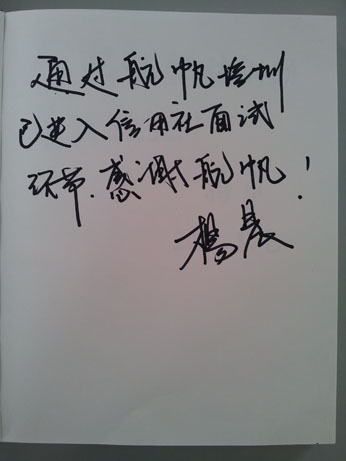 通过航帆培训
已进入信用社面试
环节.感谢航帆!
杨晨